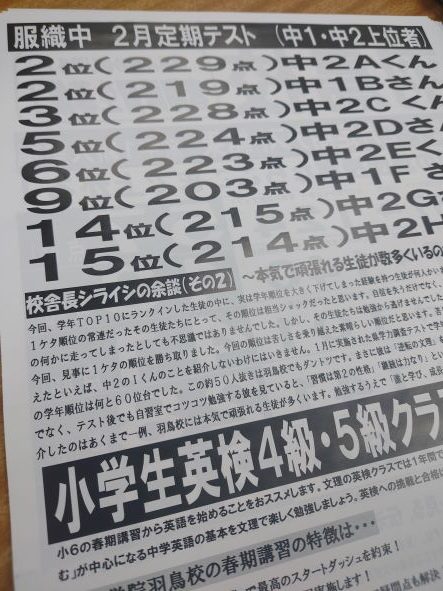 服織中 2月定期テスト (中1・中2上位者)
2位(229点)中2Aくん
2位(219点)中1Bさん
3位(228点)中2Cくん
5位(224点)中2Dさん
6位(223点)中2Eく
9位(203点)中1F
14位(215点)中2G
15位(214点)中2H
校舎長シライシの余談(その2) ~本気で頑張れる生徒が数多くいるの
今回、学年TOP10にランクインした生徒の中に、実は学年順位を大きく下げてしまった経験を持つ生徒が何人か
1ケタ順位の常連だったその生徒たちにとって、その順位は相当ショックだったと思います。自信を失うだけでなく、
の何かに走ってしまったとしても不思議ではありませんでした。しかし、その生徒たちは勉強から逃げませんでし
今回、見事に1ケタの順位を勝ち取りました。今回の順位は苦しさを乗り越えた素晴らしい順位だと思います。
えたといえば、中2のIくんのことを紹介しないわけにはいきません。1月に実施された県学力調査テストで
の学年順位は何と60位台でした。この約50人抜きは羽鳥校でもダントツです。まさに彼は「逆転の文理」
でなく、テスト後でも自習室でコツコツ勉強する彼を見ていると、「習慣は第2の性格」「継続は力なり」
介したのはあくまで一例、羽鳥校には本気で頑張れる生徒が多くいます。勉強するうえで「楽と学び、成長
小学生英検4級・5級クラス
小6の春期講習から英語を始めることをおススメします。文理の英検クラスでは1年間で
む」が中心になる中学英語の基本を文理で楽しく勉強しましょう。英検への挑戦と合格に
学院羽鳥校の春期講習の特徴は…
で最高のスタートダッシュを約束!
実施します!
疑問点も解決